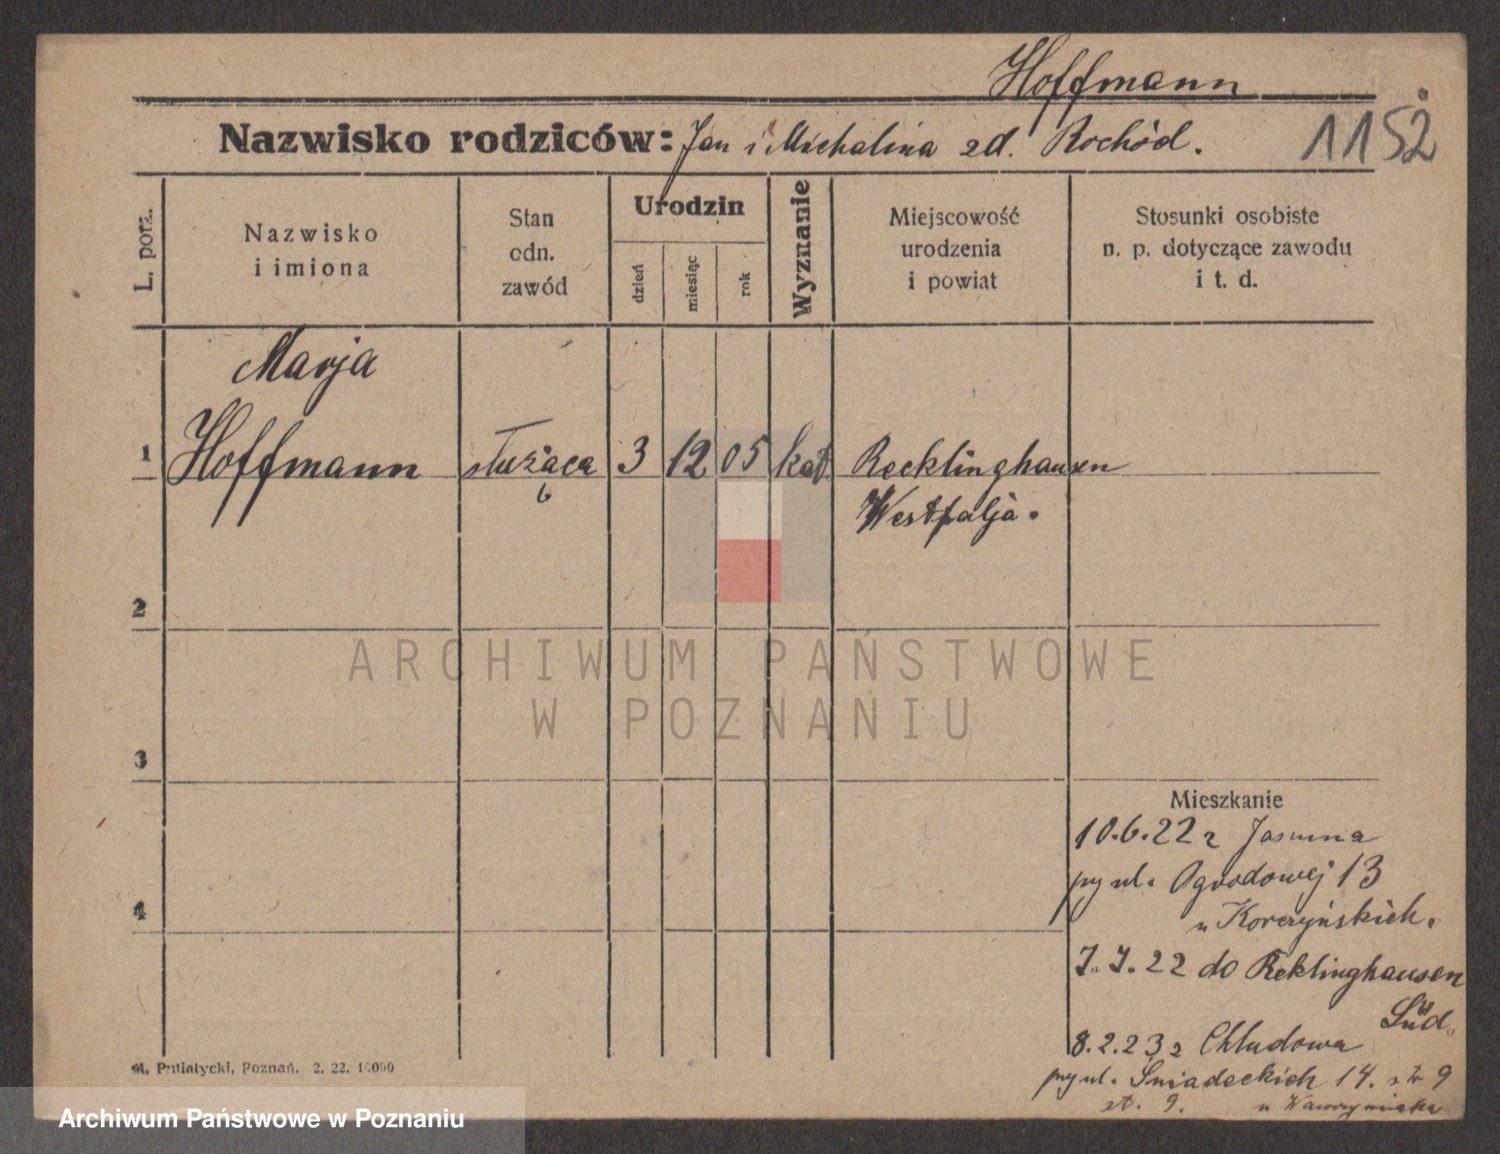 Hoffmann
Nazwisko rodziców: Jan i Michalina zd. Rochód.
1152
L. porz.
Nazwisko
i imiona
Stan
odn.
zawód
Urodzin
dzień
miesiąc
rok
Wyznanie
Miejscowość
urodzenia
i powiat
Stosunki osobiste
n. p. dotyczące zawodu
i t. d.
Marja
1 Hoffmann służąca 3 12 05 kat Recklinghausen
Westfalja.
2
3
4
ARCHIWUM PAŃSTWOWE
W POZNANIU
Mieszkanie
10.6.22 z
py ul. Ogrodowej 13
u Korczyńskich.
7.7.22 do Reklinghausen
Süd.
8.2.23 z Chludowa
py ul. Śniadeckich 14. 9
st. 9. u
M. Putiatycki, Poznań. 2. 22. 10000
Archiwum Państwowe w Poznaniu